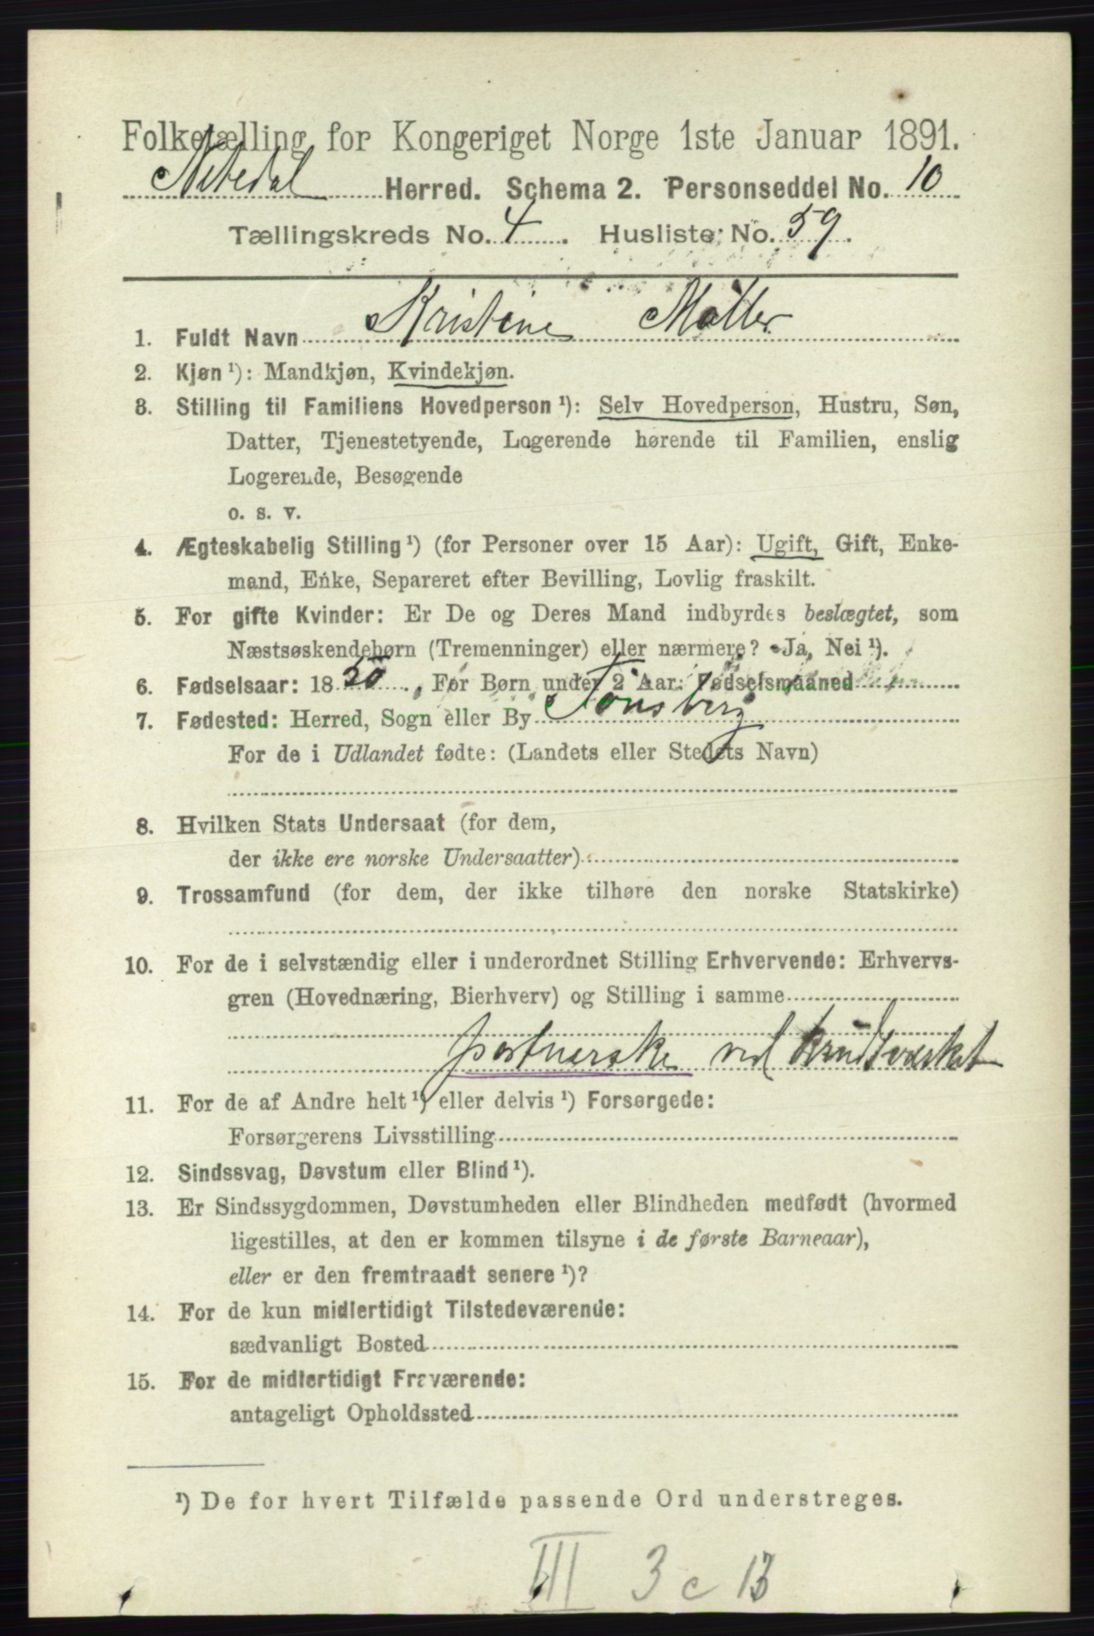 Folketælling for Kongeriget Norge 1ste Januar 1891.
Nitedal Herred. Schema 2. Personseddel No. 10
Tællingskreds No. 4. Husliste No. 59.
1. Fuldt Navn Kristine Møller
2. Kjøn ¹): Mandkjøn, Kvindekjøn.
3. Stilling til Familiens Hovedperson ¹): Selv Hovedperson, Hustru, Søn,
Datter, Tjenestetyende, Logerende hørende til Familien, enslig
Logerende, Besøgende
o. s. v.
4. Ægteskabelig Stilling ¹) (for Personer over 15 Aar): Ugift, Gift, Enke-
mand, Enke, Separeret efter Bevilling, Lovlig fraskilt.
5. For gifte Kvinder: Er De og Deres Mand indbyrdes beslægtet, som
Næstsøskendebørn (Tremenninger) eller nærmere? Ja, Nei ¹).
6. Fødselsaar: 1850. For Børn under 2 Aar: Fødselsmaaned
7. Fødested: Herred, Sogn eller By Tønsberg
For de i Udlandet fødte: (Landets eller Stedets Navn)
8. Hvilken Stats Undersaat (for dem,
der ikke ere norske Undersaatter)
9. Trossamfund (for dem, der ikke tilhøre den norske Statskirke)
10. For de i selvstændig eller i underordnet Stilling Erhvervende: Erhvervs-
gren (Hovednæring, Bierhverv) og Stilling i samme
portnerske ved Krudtværket
11. For de af Andre helt ¹) eller delvis ¹) Forsørgede:
Forsørgerens Livsstilling
12. Sindssvag, Døvstum eller Blind ¹).
13. Er Sindssygdommen, Døvstumheden eller Blindheden medfødt (hvormed
ligestilles, at den er kommen tilsyne i de første Barneaar),
eller er den fremtraadt senere ¹)?
14. For de kun midlertidigt Tilstedeværende:
sædvanligt Bosted
15. For de midlertidigt Fraværende:
antageligt Opholdssted
¹) De for hvert Tilfælde passende Ord understreges.
III 3 c 13